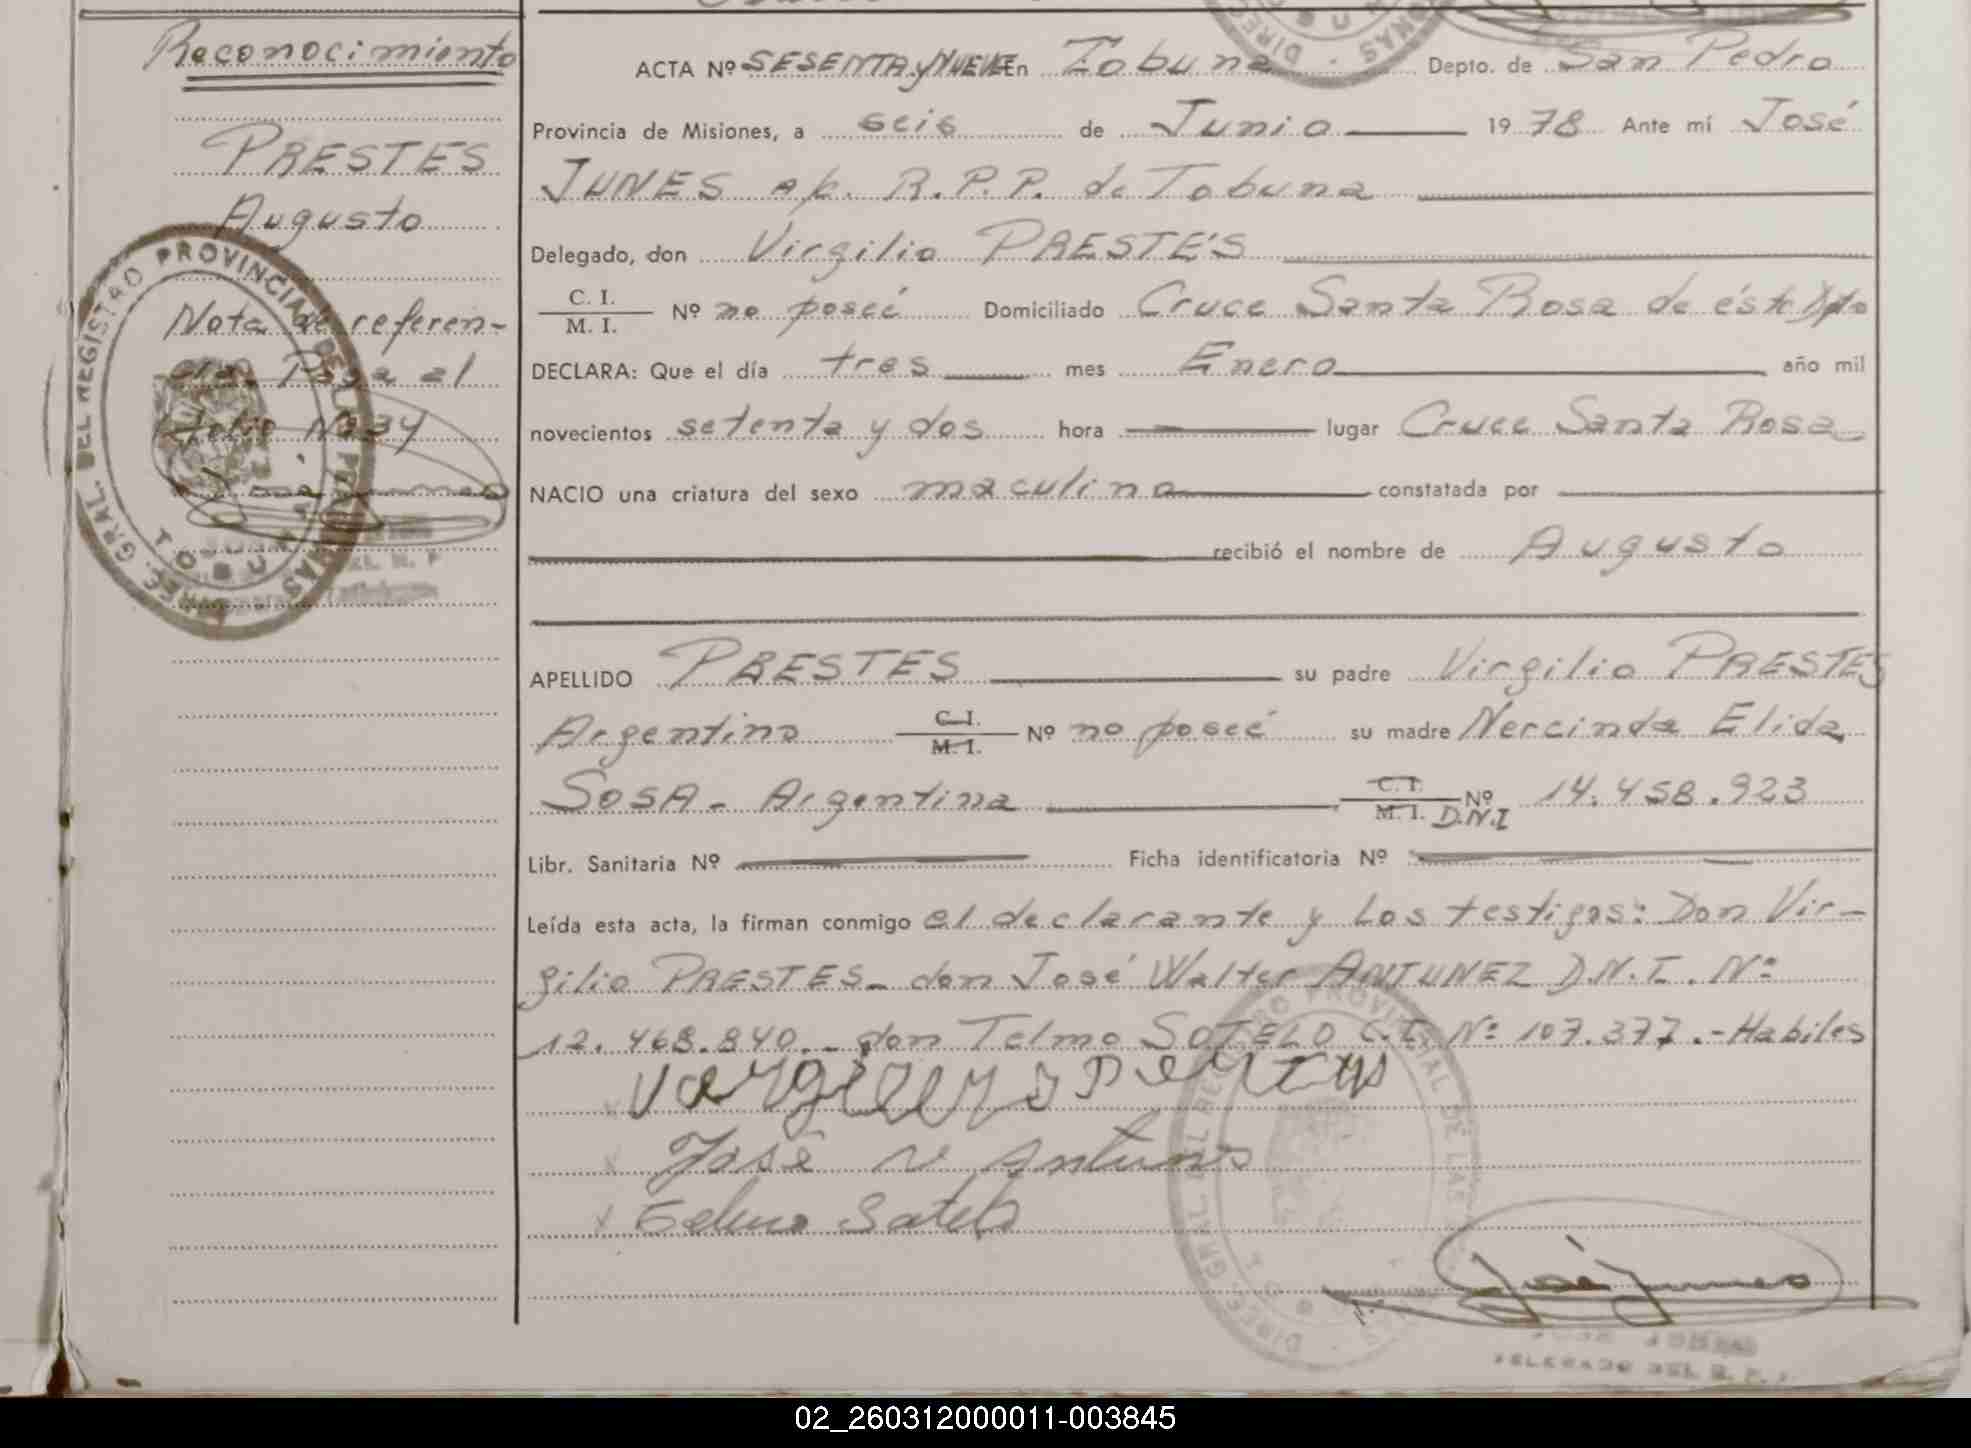 Reconocimiento
PRESTES
Augusto
Nota de referen-
cia Pasa al
Folio Nº 34
ACTA Nº SESENTA y NUEVE En Tobuna Depto. de San Pedro
Provincia de Misiones, a seis de Junio 19 78 Ante mí José
JUNES a/c. R.P.P. de Tobuna
Delegado, don Virgilio PRESTES
C. I.
M. I. Nº no poseé Domiciliado Cruce Santa Rosa de éste Dpto
DECLARA: Que el día tres mes Enero año mil
novecientos setenta y dos hora lugar Cruce Santa Rosa
NACIO una criatura del sexo maculino constatada por
recibió el nombre de Augusto
APELLIDO PRESTES su padre Virgilio PRESTES
Argentino C. I. M. I. Nº no poseé su madre Nercinda Elida
SOSA - Argentina C. I. M. I. D.N.I Nº 14.458.923
Libr. Sanitaria Nº Ficha identificatoria Nº
Leída esta acta, la firman conmigo el declarante y Los testigos: Don Vir-
gilio PRESTES - don José Walter ANTUNEZ D.N.I. Nº
12.468.840 - don Telmo SOTELO C.I. Nº 107.377.- Habiles
José W Antunes
Telmo Sotelo
José Junes
JOSE JUNES
DELEGADO DEL R. P.
DIREC. GRAL. DEL REGISTRO PROVINCIAL DE LAS PERSONAS
TOBUNA
02_260312000011-003845